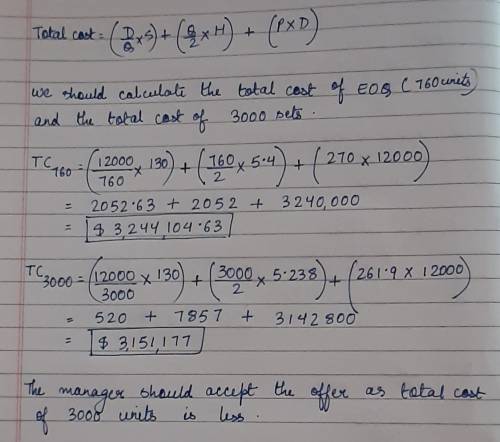 Total cost = (D/Q × S) + (Q/2 × H) + (P × D)
we should calculate the total cost of EOQ (760 units)
and the total cost of 3000 sets.
TC760 = (12000/760 × 130) + (760/2 × 5.4) + (270 × 12000)
= 2052.63 + 2052 + 3240,000
= $ 3,244,104.63
TC3000 = (12000/3000 × 130) + (3000/2 × 5.238) + (261.9 × 12000)
= 520 + 7857 + 3142800
= $ 3,151,177
The manager should accept the offer as total cost
of 3000 units is less.